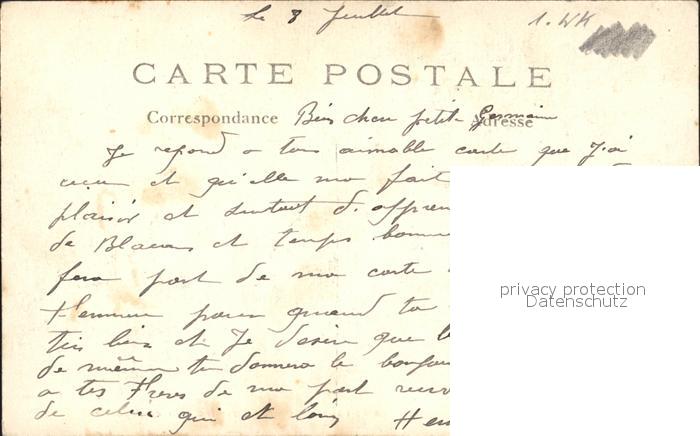 Le 8 Juillet
1. WK
CARTE POSTALE
Correspondance Bien cher petit Germain
Adresse
Je repond a ton aimable carte que J'ai
recu et qu'elle ma fait
plaisir et surtout d'appren
de et temps bonne
fera part de ma carte
pour quand tu
tres bien et Je desire que
de même tu donnera le bonjour
a tes Freres de ma part
de celui qui et loin Hen
privacy protection
Datenschutz